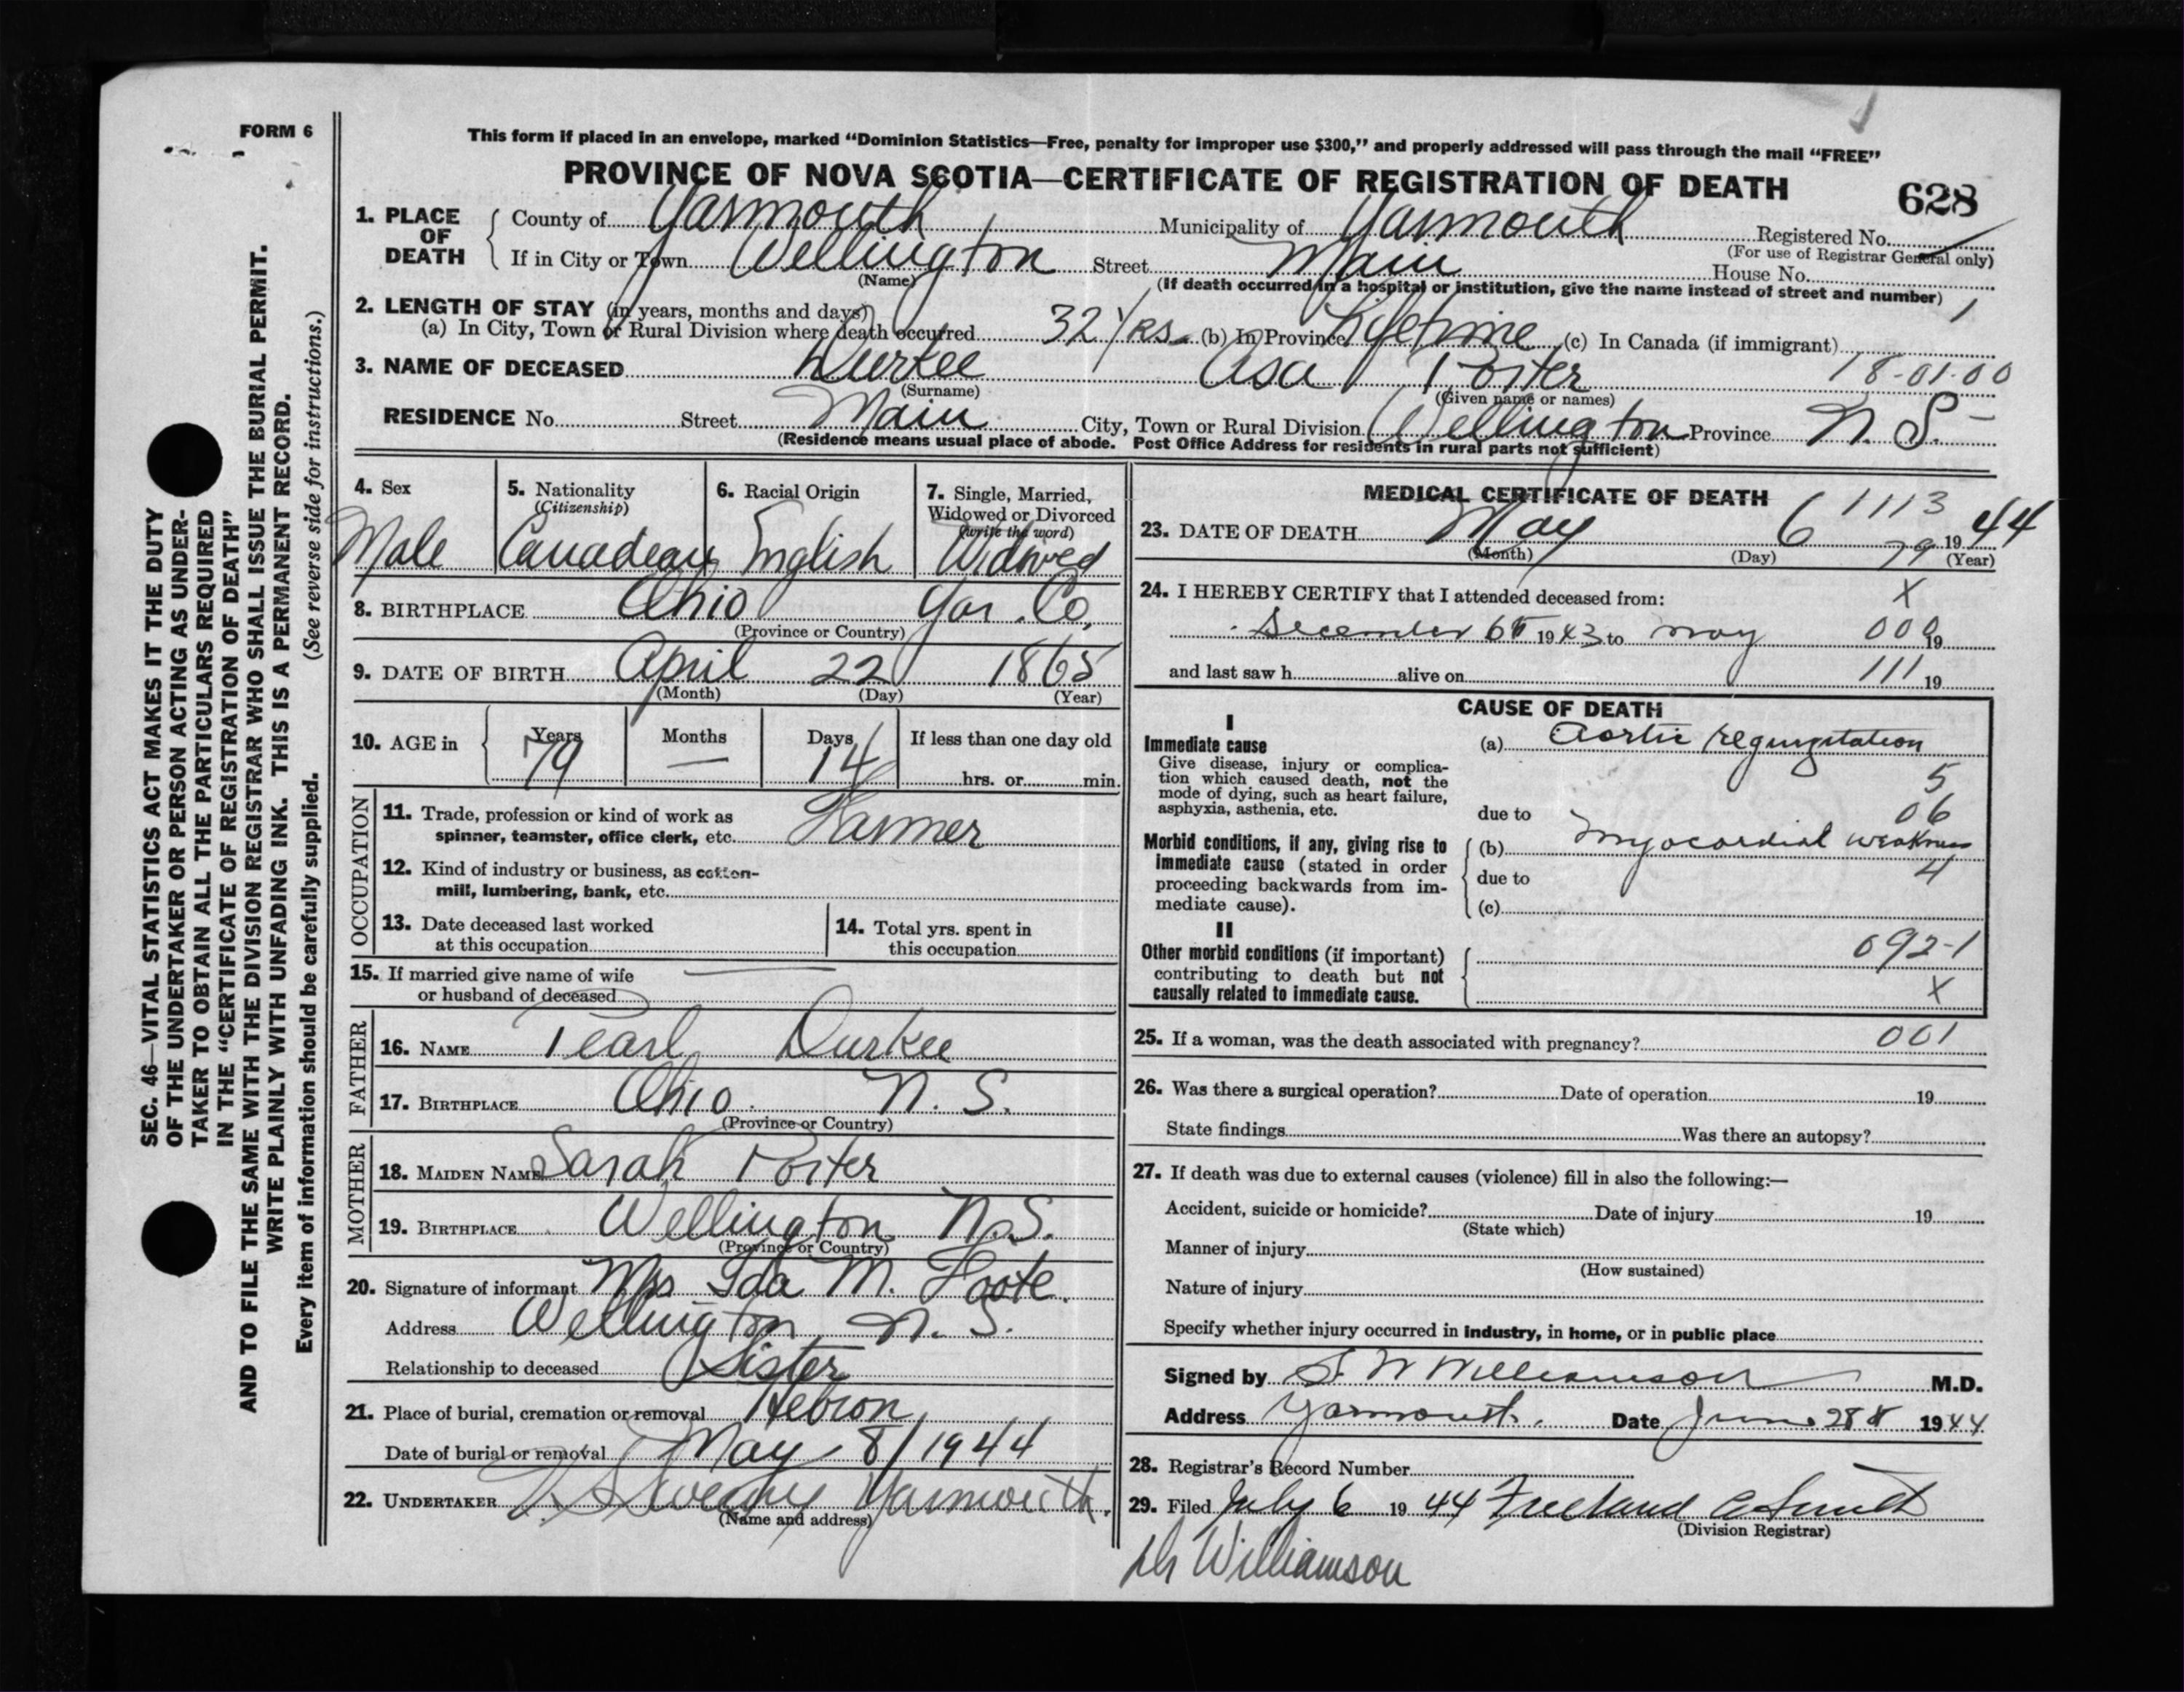 FORM 6
This form if placed in an envelope, marked “Dominion Statistics—Free, penalty for improper use $300,” and properly addressed will pass through the mail “FREE”
PROVINCE OF NOVA SCOTIA—CERTIFICATE OF REGISTRATION OF DEATH
628
1. PLACE OF DEATH
County of Yarmouth Municipality of Yarmouth Registered No.
(For use of Registrar General only)
If in City or Town Wellington Street Main House No.
(Name)
(If death occurred in a hospital or institution, give the name instead of street and number) 1
2. LENGTH OF STAY (in years, months and days)
(a) In City, Town or Rural Division where death occurred 32 Yrs (b) In Province Lifetime (c) In Canada (if immigrant)
3. NAME OF DECEASED Durkee Asa Porter 18-01-00
(Surname) (Given name or names)
RESIDENCE No. Street Main City, Town or Rural Division Wellington Province N. S.
(Residence means usual place of abode. Post Office Address for residents in rural parts not sufficient)
4. Sex
Male
5. Nationality
(Citizenship)
Canadean
6. Racial Origin
English
7. Single, Married,
Widowed or Divorced
(write the word)
Widowed
8. BIRTHPLACE Ohio Yar. Co.
(Province or Country)
9. DATE OF BIRTH April 22 1865
(Month) (Day) (Year)
10. AGE in
Years Months Days If less than one day old
79 — 14 hrs. or min.
OCCUPATION
11. Trade, profession or kind of work as
spinner, teamster, office clerk, etc. Farmer
12. Kind of industry or business, as cotton-
mill, lumbering, bank, etc.
13. Date deceased last worked
at this occupation
14. Total yrs. spent in
this occupation
15. If married give name of wife
or husband of deceased —
FATHER
16. NAME Pearl Durkee
17. BIRTHPLACE Ohio N. S.
(Province or Country)
MOTHER
18. MAIDEN NAME Sarah Porter
19. BIRTHPLACE Wellington N.S.
(Province or Country)
20. Signature of informant Mrs Ida M. Foote.
Address Wellington, N. S.
Relationship to deceased Sister
21. Place of burial, cremation or removal Hebron
Date of burial or removal May 8/1944
22. UNDERTAKER Sweeny Yarmouth.
(Name and address)
MEDICAL CERTIFICATE OF DEATH
1113
23. DATE OF DEATH May 6 1944
(Month) (Day) (Year)
79
24. I HEREBY CERTIFY that I attended deceased from: X
December 6th 1943 to may 000 19
and last saw h alive on 111 19
CAUSE OF DEATH
I
Immediate cause
Give disease, injury or complica-
tion which caused death, not the
mode of dying, such as heart failure,
asphyxia, asthenia, etc.
(a) Aortic regurgitation
5
due to 06
Morbid conditions, if any, giving rise to
immediate cause (stated in order
proceeding backwards from im-
mediate cause).
(b) myocardial weakness
due to 4
(c)
II
Other morbid conditions (if important)
contributing to death but not
causally related to immediate cause.
092-1
X
25. If a woman, was the death associated with pregnancy? 001
26. Was there a surgical operation? Date of operation 19
State findings Was there an autopsy?
27. If death was due to external causes (violence) fill in also the following:—
Accident, suicide or homicide? Date of injury 19
(State which)
Manner of injury
(How sustained)
Nature of injury
Specify whether injury occurred in industry, in home, or in public place
Signed by S. W Williamson M.D.
Address Yarmouth. Date June 28th 1944
28. Registrar's Record Number
29. Filed July 6 1944 Freeland Smith
(Division Registrar)
Dr Williamson
SEC. 46—VITAL STATISTICS ACT MAKES IT THE DUTY
OF THE UNDERTAKER OR PERSON ACTING AS UNDER-
TAKER TO OBTAIN ALL THE PARTICULARS REQUIRED
IN THE “CERTIFICATE OF REGISTRATION OF DEATH”
AND TO FILE THE SAME WITH THE DIVISION REGISTRAR WHO SHALL ISSUE THE BURIAL PERMIT.
WRITE PLAINLY WITH UNFADING INK. THIS IS A PERMANENT RECORD.
Every item of information should be carefully supplied. (See reverse side for instructions.)